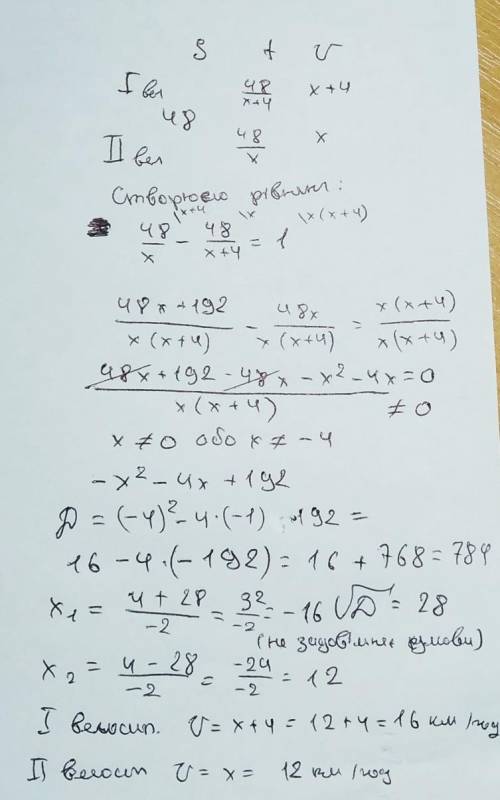 S t v
I вел 48/(x+4) x+4
48
II вел 48/x x
Створюємо рівнянн:
48/x \x+4 - 48/(x+4) \x = 1 \x(x+4)
(48x+192)/(x(x+4)) - 48x/(x(x+4)) = x(x+4)/(x(x+4))
(48x+192-48x-x²-4x)/(x(x+4)) = 0 ≠0
x ≠ 0 або x ≠ -4
-x²-4x+192
D = (-4)²-4·(-1)·192=
16-4·(-192)=16+768=784
x₁ = (4+28)/-2 = 32/-2 = -16 √D = 28
(не задовільняє умови)
x₂ = (4-28)/-2 = -24/-2 = 12
I велосип. V=x+4=12+4=16 км/год
II велосип V=x= 12 км/год